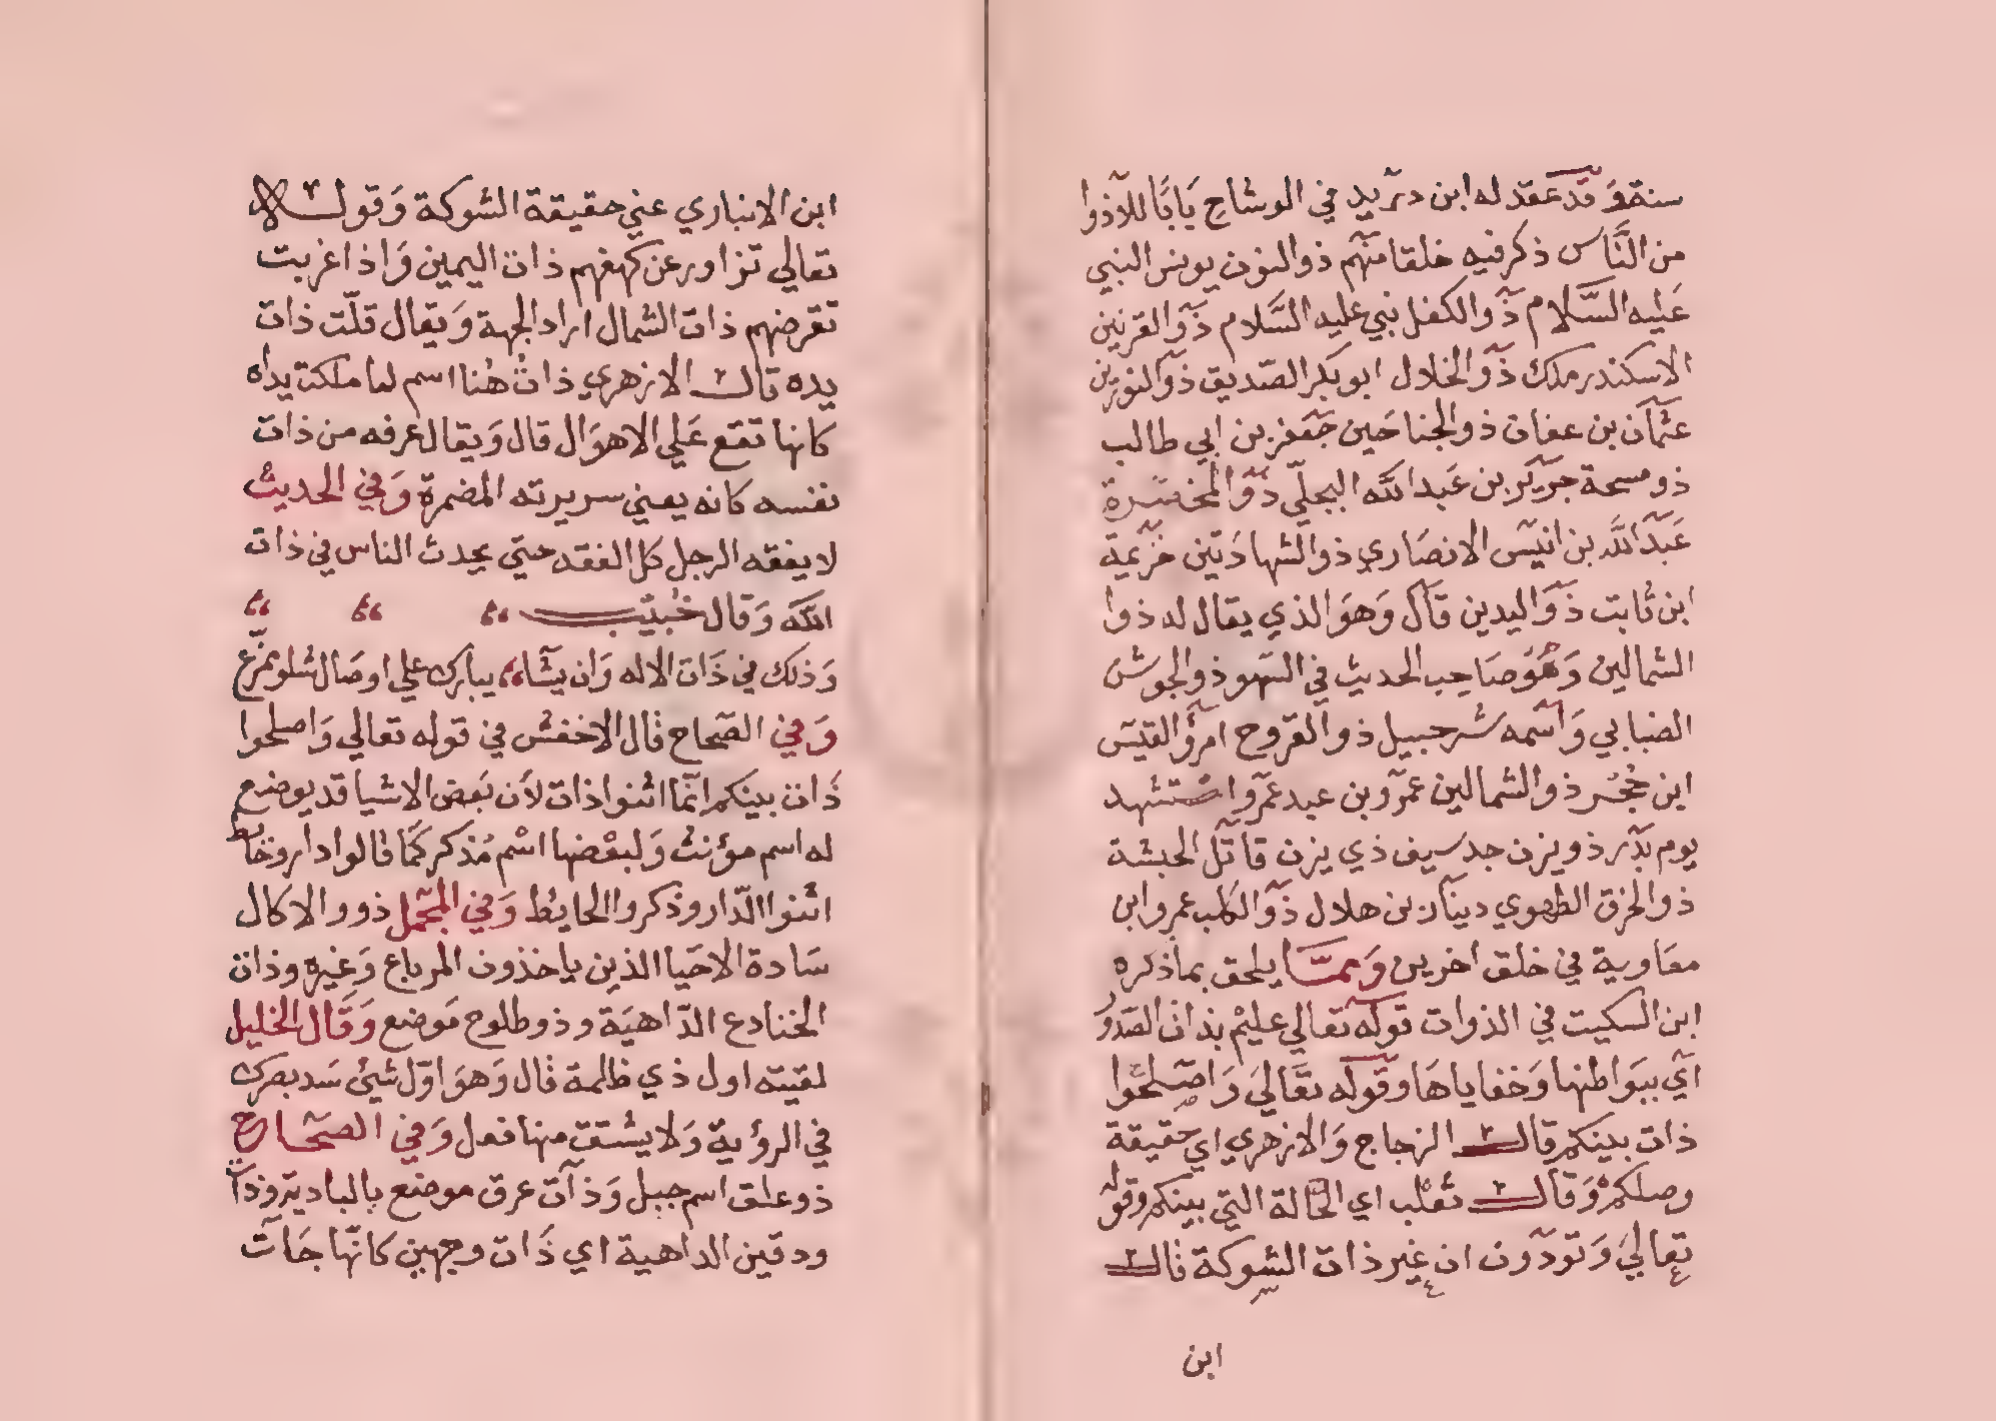 سنة وَقد عَقد له ابن دريد في الوشاح بَابًا للاذوا
من النَّاس ذكر فيه خلقا منهم ذو النون يونس النبي
عَليه السَّلام ذو الكفل نبي عليه السَّلام ذو القرنين
الاسكندر ملك ذو الخلال ابو بكر الصّديق ذو النورين
عثمان بن عفان ذو الجناحَين جَعفر بن ابي طالب
ذو مسحة جرير بن عَبد الله البجلّي ذو المخصرة
عَبد الله بن انيس الانصَاري ذو الشهادَتين خزيمة
ابن ثابت ذو اليدين قال وَهوَ الذي يقال له ذوا
الشمالين وَهُوَ صَاحِب الحديث في السَّهو ذو الجوشن
الضبابي وَاسمه شرحبيل ذو القروح امرؤ القيس
ابن حُجُر ذو الشمالين عمرو بن عبد عمرو استشهد
يوم بدر ذو يزن جد سيف ذي يزن قاتل الحبشة
ذو الخرق الطهوي دينار بن هلال ذو الكلب عمرو ابن
معَاوية في خلق اخرين وَممَّا يلحق بما ذكره
ابن السكيت في الذوات قوله تعالي عليمْ بذات الصّدور
اي ببَواطنها وَخفاياهَا وقوله تعَالي وَاصلحُوا
ذات بينكم قال الزجاج وَالازهري اي حقيقة
وصلكمْ وَقال ثعْلب اي الحَالة التي بينكم وقوله
تعالي وَتودّون ان غير ذات الشوكة قال
ابن
ابن الانباري عني حقيقة الشوكة وَقوله
تعالي تزاور عن كهفهم ذات اليمين وَاذا غربت
تقرضهم ذات الشمال اراد الجهة وَيقال قلّت ذات
يده قال الازهري ذاتُ هُنا اسم لما ملكت يداه
كانها تقع عَلي الاموَال قال وَيقال عرفه من ذات
نفسه كانه يعني سريرته المضمرة وَفي الحديث
لا يفقه الرجل كل الفقه حتي يحدث الناس في ذات
الله وَقال خُبيَب
وَذلك في ذَات الاله وَان يشَا يبارك علي اوصَال شلو ممزّع
وَفي الصّحاح قال الاخفش في قوله تعالي وَاصلحوا
ذَات بينكم انّما انثوا ذات لأن بَعض الاشيا قد يوضع
له اسم مؤنث وَلبعْضها اسْم مُذكر كمَا قالوا دار وحَايط
انثوا الدّار وذكروا الحايط وَفي المجمل ذوو الاكال
سَادة الاحيَا الذين ياخذون المرباع وَغيره وذات
الخنادع الدّاهيَة وذو طلوح مَوضع وَقَال الخليل
لقيته اول ذي ظلمة قال وَهوَ اوّل شيئ سَد بصرك
في الرؤية وَلا يشتق منها فعل وَفي الصحَاح
ذو علق اسم جبل وَذات عرق موضع بالبادية وذات
ودقين الداهية اي ذَات وجهين كانّها جَات